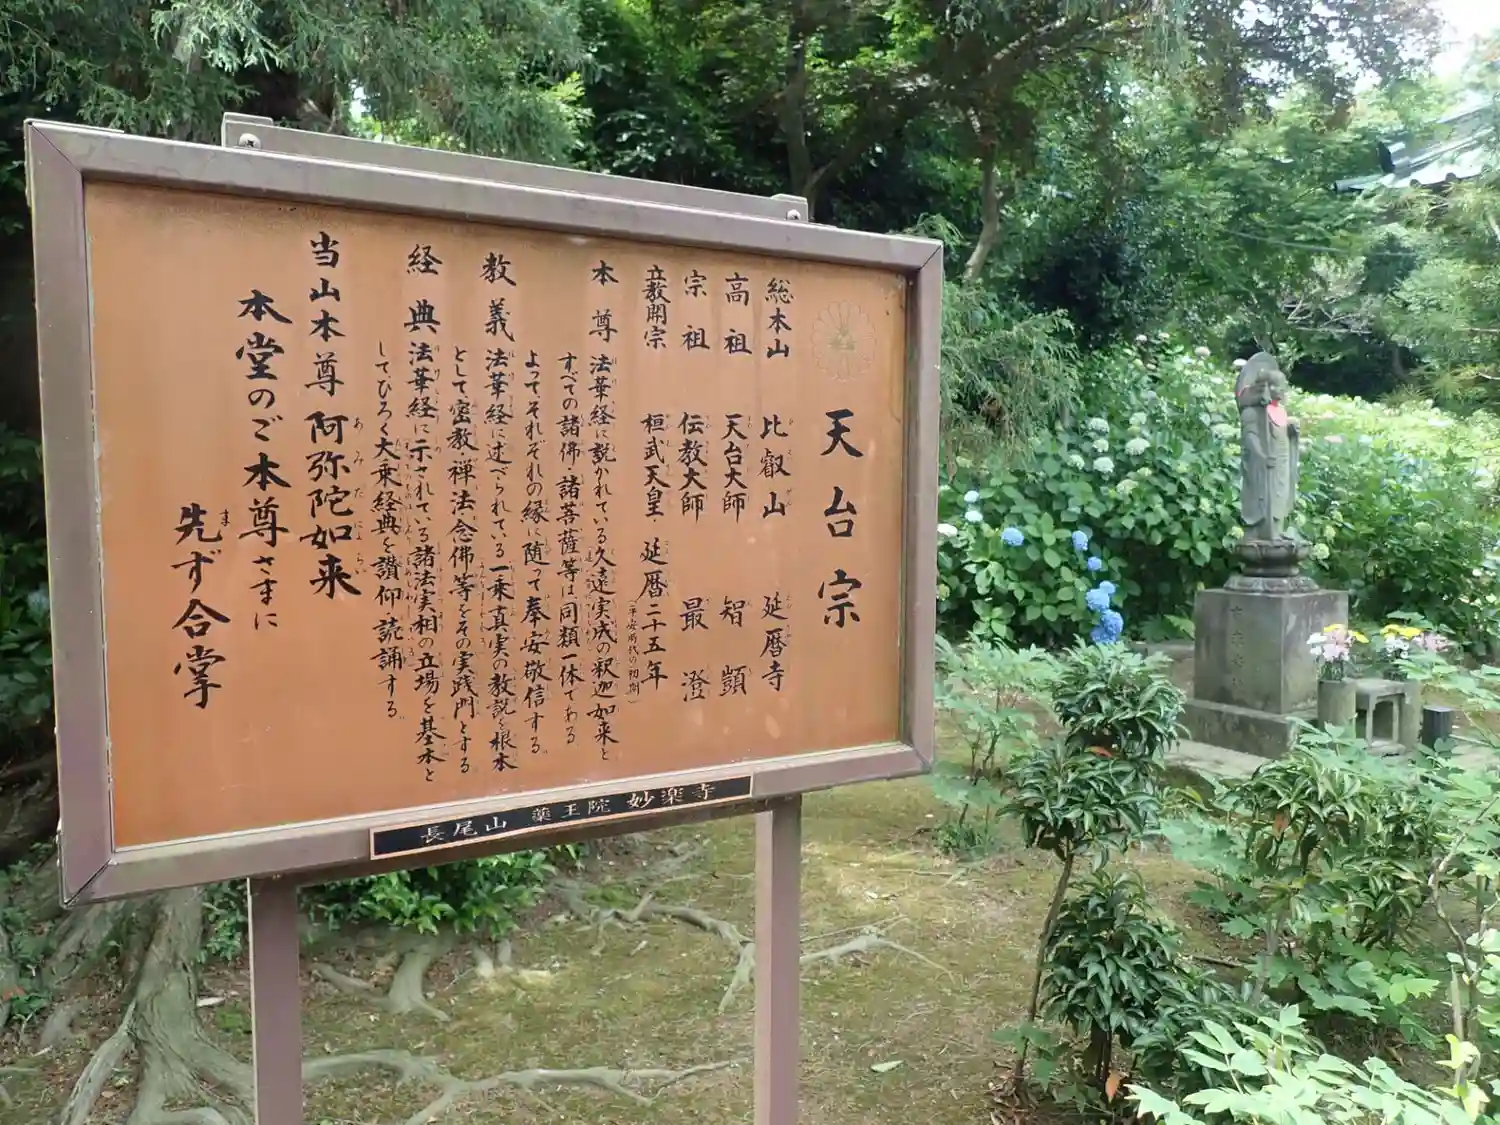 天台宗
総本山 比叡山 延暦寺
高祖 天台大師 智顗
宗祖 伝教大師 最澄
立教開宗 桓武天皇・延暦二十五年
（平安時代の初期）
本尊 法華経に説かれている久遠実成の釈迦如来と
すべての諸佛・諸菩薩等は同類一体である
よってそれぞれの縁に随って奉安敬信する
教義 法華経に述べられている一乗真実の教説を根本
として密教・禅法・念佛等をその実践門とする
経典 法華経に示されている諸法実相の立場を基本と
してひろく大乗経典を讃仰読誦する。
当山本尊 阿弥陀如来
あみだにょらい
本堂のご本尊さまに
先ず合掌
長尾山 薬王院 妙楽寺